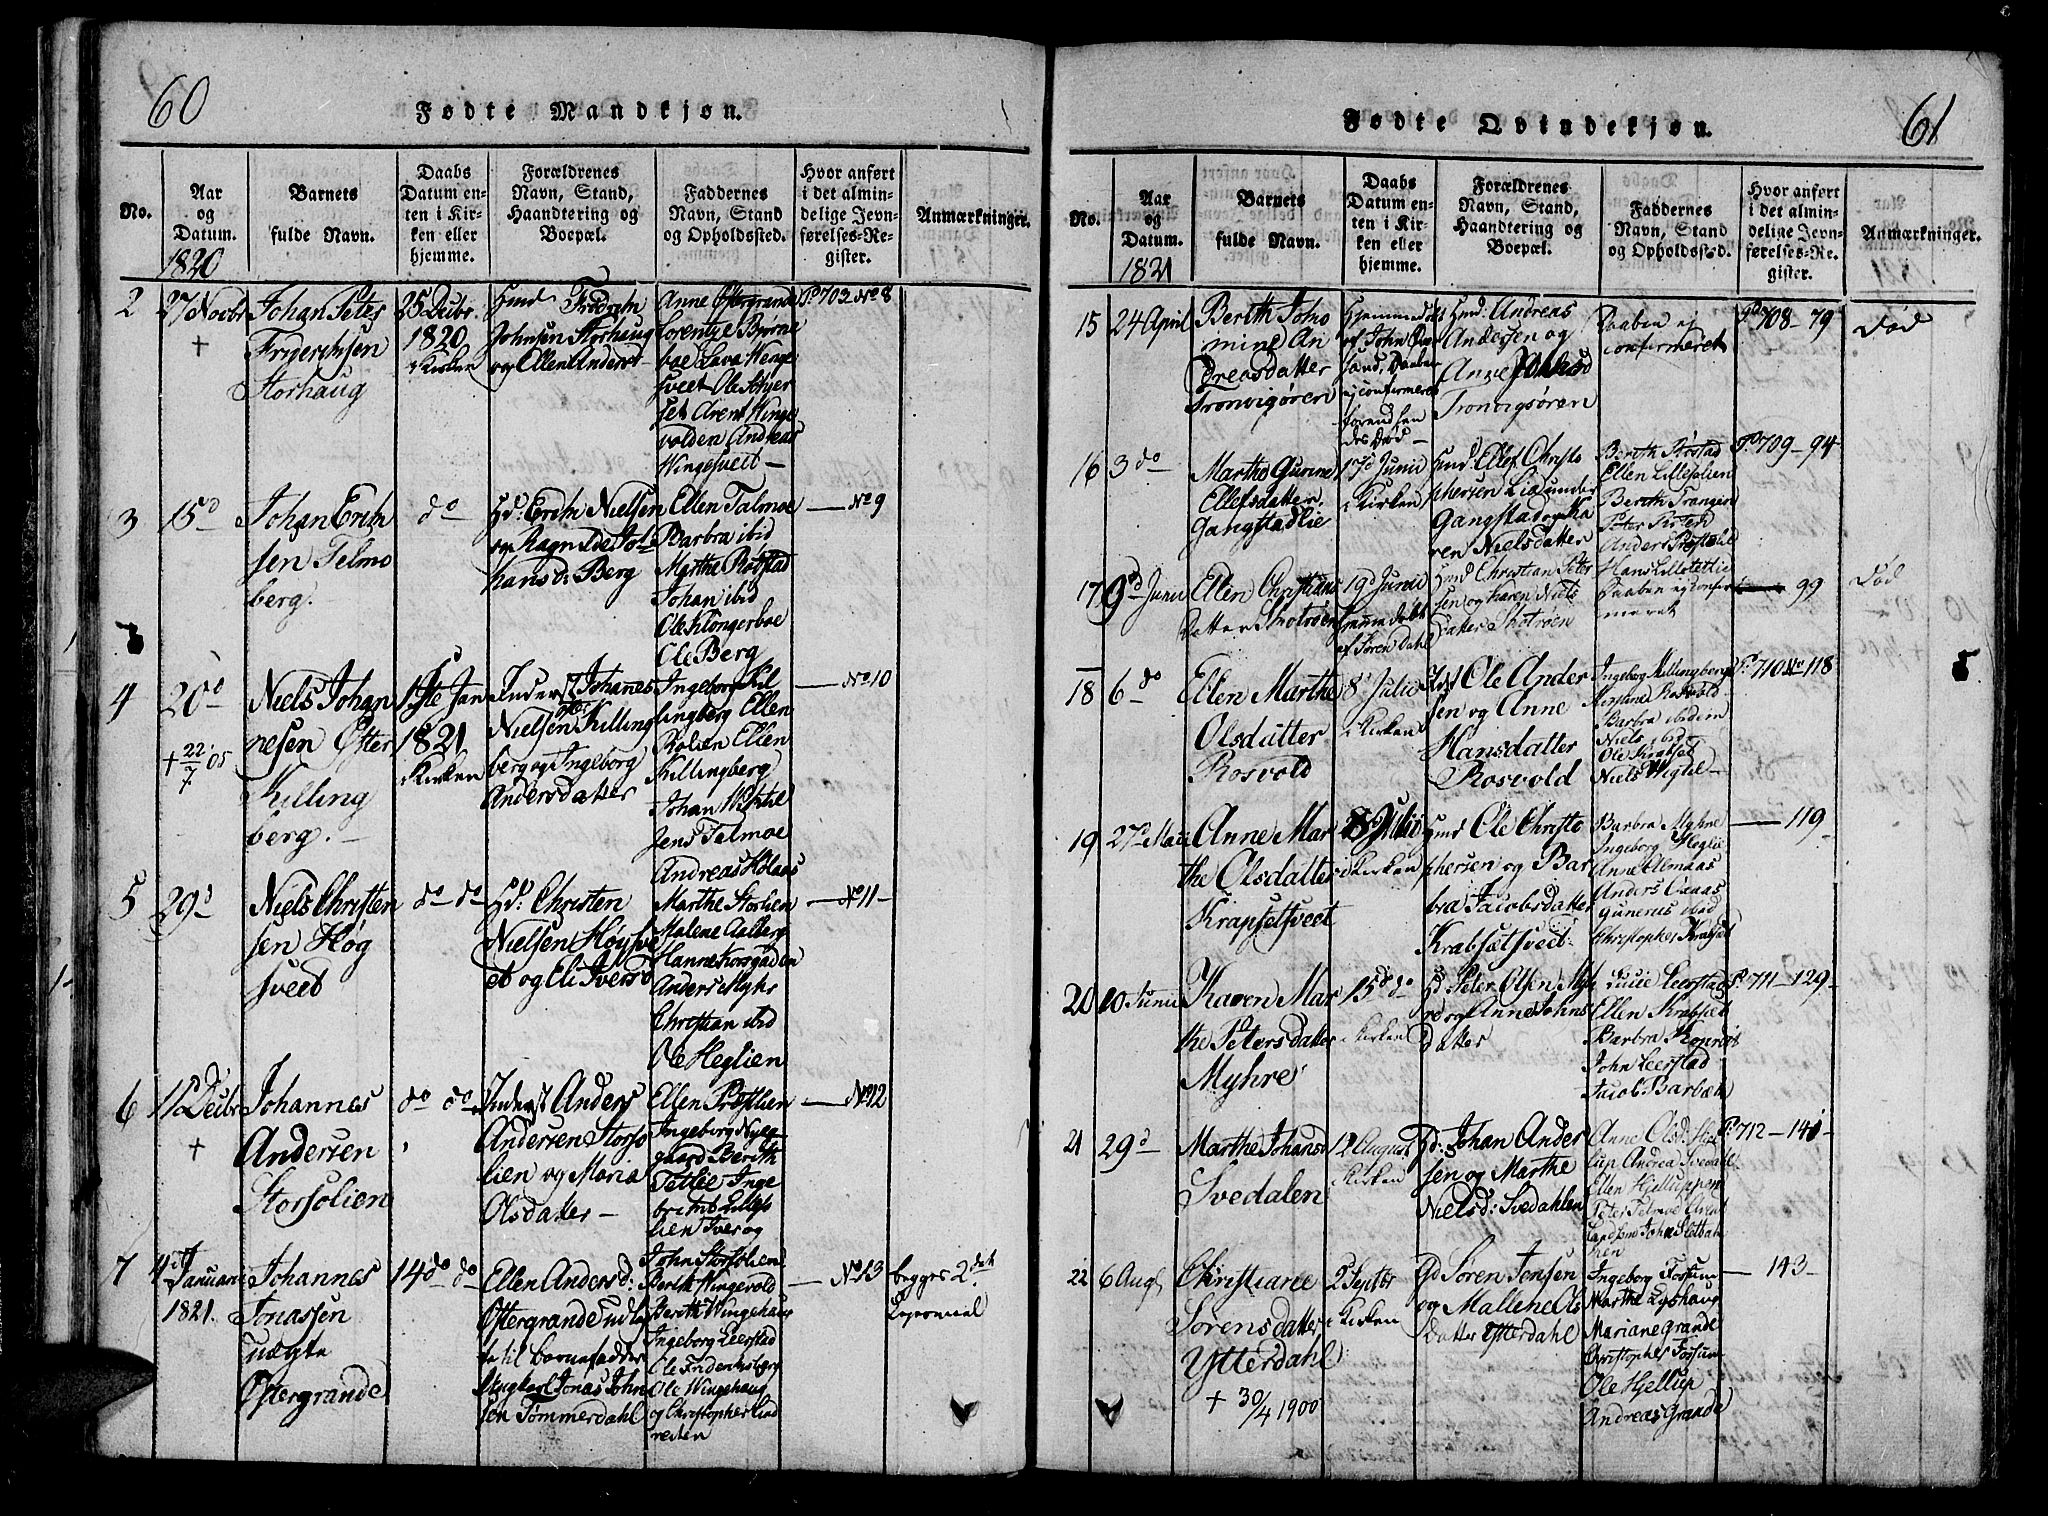 60
Fødte Mandkjøn.
No.
Aar
og
Datum.
1820
Barnets
fulde Navn.
Daabs
Datum en-
ten i Kir-
ken eller
hjemme.
Forældrenes
Navn, Stand,
Haandtering og
Boepæl.
Faddernes
Navn, Stand
og Opholdssted.
Hvor anført
i det almin-
delige Jevn-
førelses-Re-
gister.
Anmærkninger.
2
27 Novbr
+
Johan Peter
Friderichsen
Storhaug
25 Decbr.
1820
i Kirken
Johnsen Storhaug
og Ellen Anders
Anne Østergrande
Lorentze Bjørne
boe Lava Wenge
sveet Ole Styer
set Arent Winge
volden Andreas
Wingesveet
P 703 No 8
3
15 d
Johan Erich
sen Telmo
berg.
do
Gd: Erich Nielsen
og Ragnilde Jo
hans d: Berg
Ellen Talmoe
Barbra ibid
Marthe Røstad
Johan ibid
Ole Klongerboe
Ole Berg
No 9
4
20 d
+ 22/7 05
Niels Johan
nesen Øster
Killing
berg.
1ste Jan
1821
i Kirken
Inderst Johanes
Nielsen Killing
berg og Ingeborg
Andersdatter
Ingeborg Kil
lingberg Ellen
Rolien Ellen
Killingberg
Johan Wistie
Jens Talmoe
Andreas Holaas
No 10
5
29 d
Niels Christen
sen Høg
sveed
do do
Gd: Christen
Nielsen Høysve
et og Eli Ivers
Marthe Storlien
Malene Aalberg
Hanne Korsgaden
Anders Myhr
Christian ibid
Ole Heglien
No 11
6
11 Decbr
+
Johannes
Andersen
Storsolien
do do
Inderst Anders
Andersen Storso
lien og Maria
Olsdatter
Ellen Prøstlien
Ingeborg Nye
gaard Berith
Tetlie Inge
brigt Lilles
lien Iver og
John Storsolien
No 12
7
4de Januari
1821.
Johannes
Jonassen
uægte
Østergrande
14 do do
Ellen Andersd:
Østergrande udla
te til barnefader
Ungkarl Jonas John
sen Tømmerdahl
Berith Wingevold
Berith Wingehaug
Ingeborg Leerstad
Ole Friderichsberg
Ole Wingehaug
og Christopher Lind
resten
No 13
begges 2det
Leiermaal
61
Fødte Qvindekjøn.
No.
Aar
og
Datum.
1821
Barnets
fulde Navn.
Daabs
Datum en-
ten i Kir-
ken eller
hjemme.
Forældrenes
Navn, Stand,
Haandtering og
Boepæl.
Faddernes
Navn, Stand
og Opholdssted.
Hvor anført
i det almin-
delige Jevn-
førelses-Re-
gister.
Anmærkninger.
15
24 April
Berith Joho
mine An
dreasdatter
Tronvigøren
Hjemmedøbt
af John
Daaben
ej confirmeret
forend hen
des Død
Hmd. Andreas
Andersen og
Anne
Tronvigsøren
Daaben ej
confirmeret
P 708 - 79
Død
16
3 do
Marthe Gurine
Ellefsdatter.
Gangstadlie
17 d Junii
i Kirken
Hmd Ellef Christo
phersen Lie under
Gangstad og Ka
ren Nielsdatter
Berith Røstad
Ellen Lillesolien
Berith Trangen
Peter Risten
Anders
Hans Lilletetlie
P 709 - 94
17
9 d Junii
Ellen Christians
Datter Skotrøen
19 d Junii
hjemmedøbt
af Søren Dahl
Hmd Christian Peter
sen og Karen Niels
datter Skotrøen
Daaben ej confir
meret
99
Død
18
6 do
Ellen Marthe
Olsdatter
Rosvold
8 d Julio
i Kirken
Ole Ander
sen og Anne
Hansdatter
Rosvold
Ingeborg Killingberg
Kirstine Rosvold
Barbra ibidem
Niels ibid
Ole Krabset
Niels Wiglie
P 710 No 118
19
27 d Maii
Anne Mar
the Olsdatter
Krapsetsveet
8 Julio
i Kirken
Hmd Ole Christo
phersen og Bar
bra Jacobsdatter
Krabsætsveet
Barbra Myhre
Ingeborg Heglie
Anne Almaas
Anders Aaaas
Gunerus ibid
Christopher Krabset
119
20
10 Junii
Karen Mar
the Petersdatter
Myhre
15 d do
i Kirken
Gd Peter Olsen My
re og Anne Johns
datter
Lucie Leerstad
Ellen Krabsæt
Barbra
John Leerstad
Jacob Barbæk
P. 711 - 129
21
29 d
Marthe Johansd
Svedalen
12 August
i Kirken
Gd: Johan Ander
sen og Marthe
Nielsd: Svedahlen
Anne Olsd: Hiel
lup Andrea Svedahl
Ellen Hjelluppen
Peter Telmoe Arent
P 712 - 141
22
6 Aug
Christiane
Sørensdatter
Ytterdahl
+ 30/4 1900
2 Septbr
i Kirken
Gd Søren Jensen
og Mallene Ols
datter Ytterdahl
Ingeborg Fossum
Marthe Lyshaug
Mariane Grande
Christopher Fossum
Ole Hjellup
Andreas Grande
143